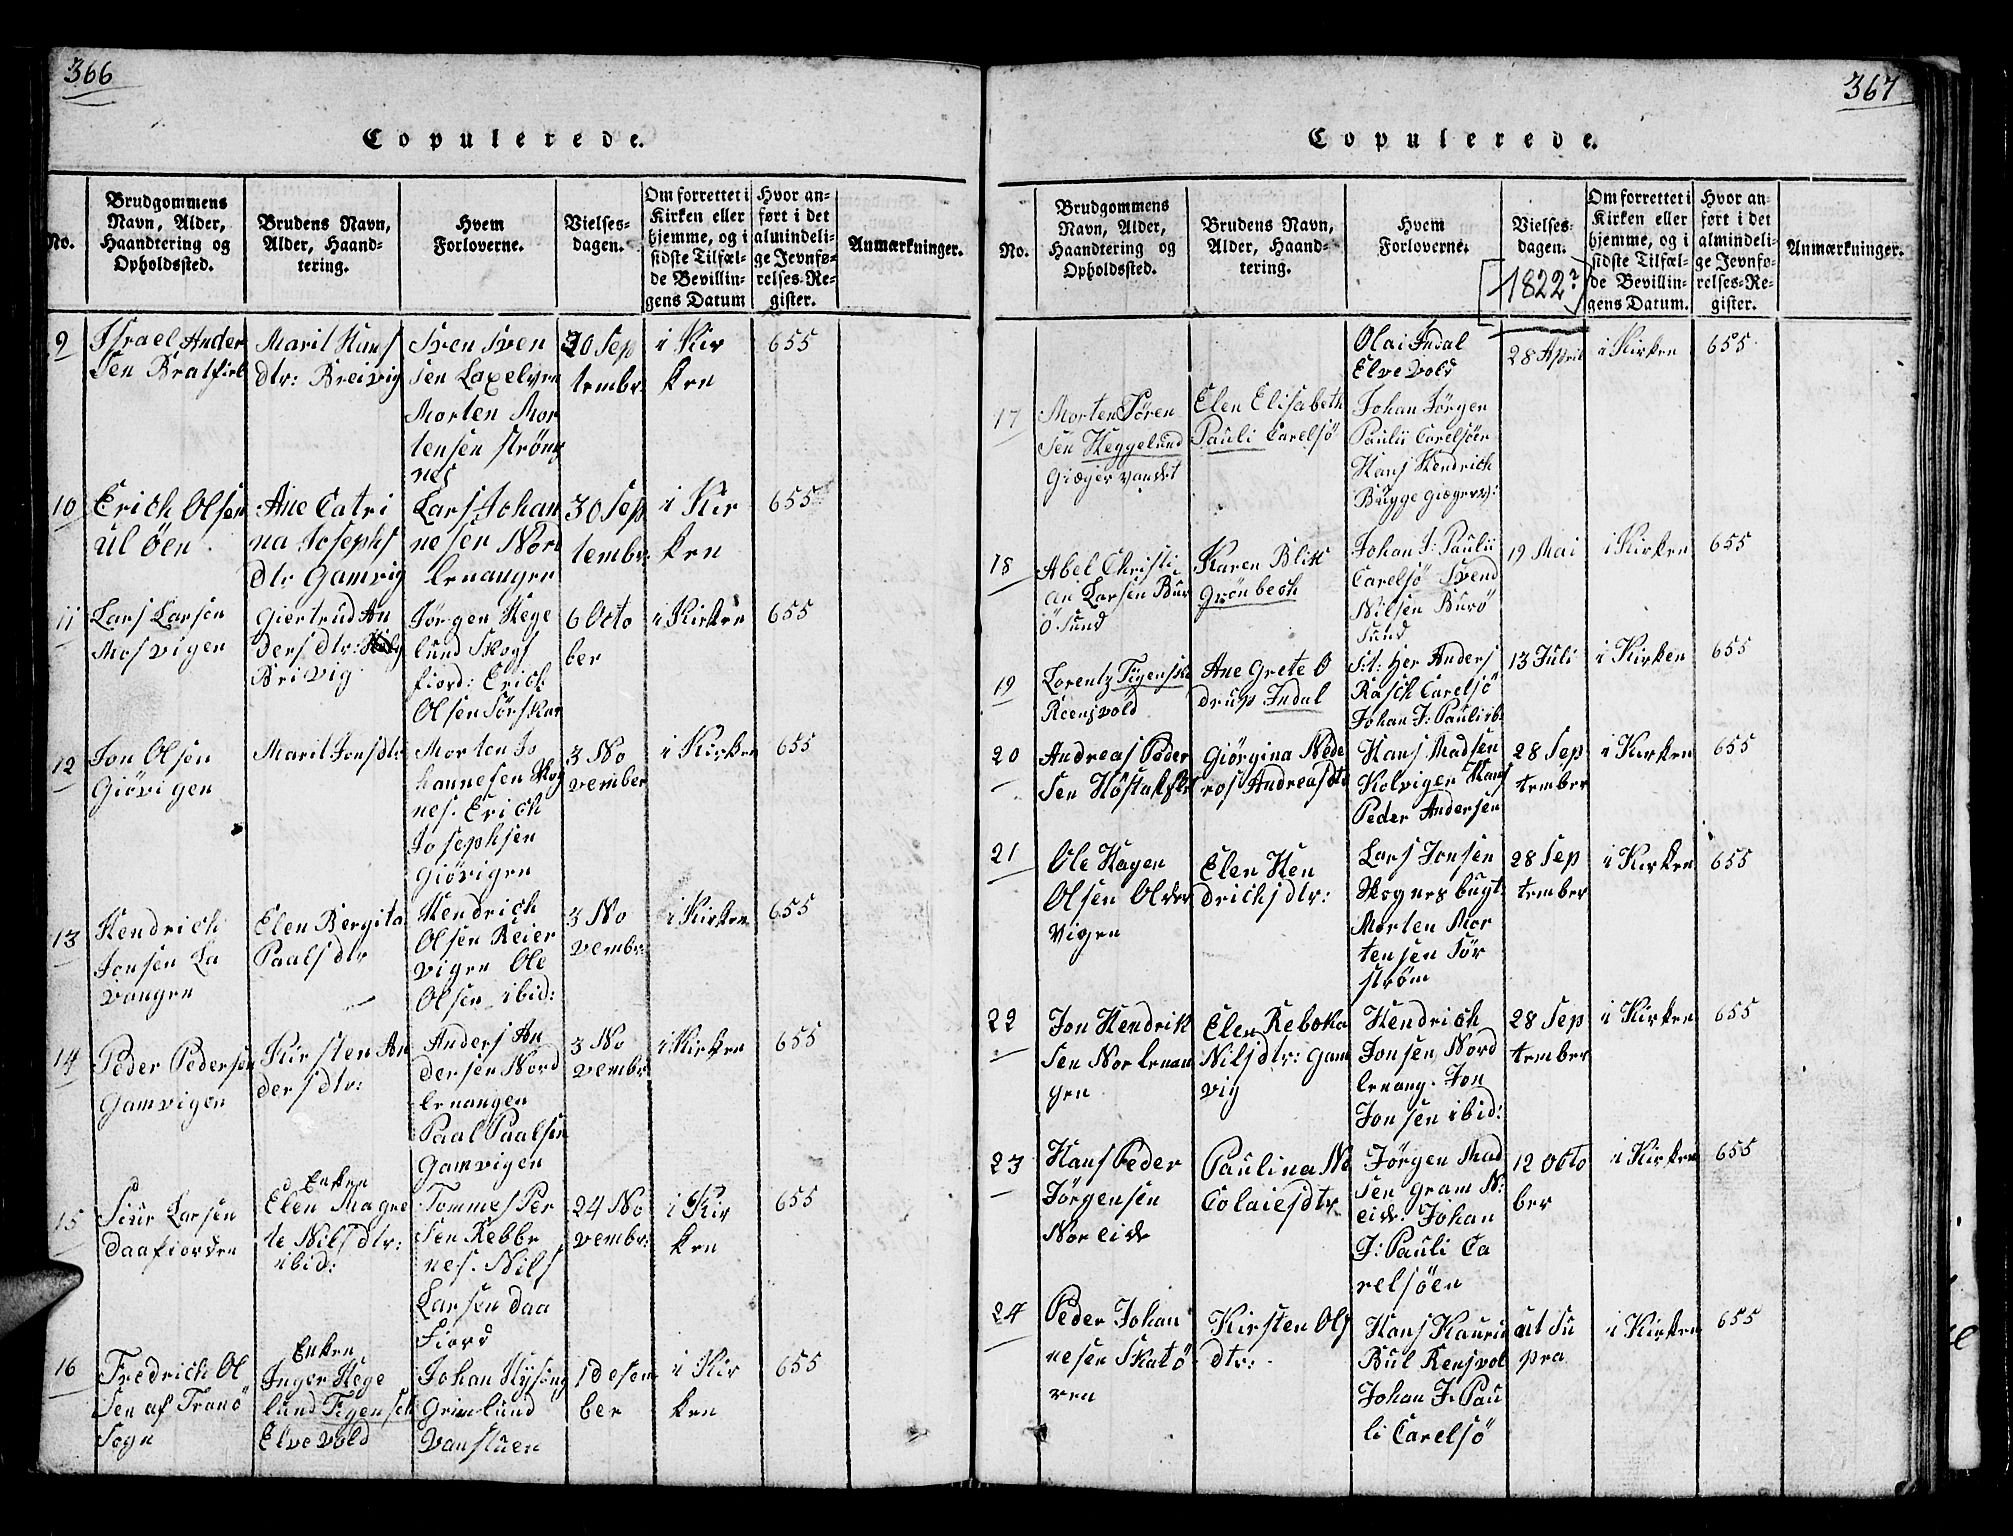 366
Copulerede.
No.
Brudgommens
Navn, Alder,
Haandtering og
Opholdssted.
Brudens Navn,
Alder, Haand-
tering.
Hvem
Forloverne.
Vielses-
dagen.
Om forrettet i
Kirken eller
hjemme, og i
sidste Tilfæl-
de Bevillin-
gens Datum
Hvor an-
ført i det
almindeli-
ge Jevnfø-
relses-Re-
gister.
Anmærkninger.
9
Israel Ander
Sen Bratfiel
Marit Hans
dtr: Breivig
Sven Sven
sen Laxelven
Morten Mor
tensen Strøms
nes
30 Sep
tembr
i Kir
ken
655
10
Erich Olsen
ul Öen
Ane Catri
na Josephs
dtr Gamvig
Lars Johan
nesen Nor
Lenangen
30 Sep
tembr
i Kir
ken
655
11
Lars Larsen
Mosvigen
Giertrud An
ders dtr:
Brivig
Jörgen Hege
lund Skogs
fiord: Erich
Olsen Sörskar
6 Octo
ber
i Kirken
655
12
Jon Olsen
Giövigen
Marit Jonsdtr
Morten Jo
hannesen Skog
nes. Erich
Josephsen
Giövigen
3 No
vember
i Kirken
655
13
Hendrich
Jonsen La
vangen
Elen Bergita
Paalsdtr
Hendrich
Olsen Reier
vigen Ole
Olsen ibid:
3 No
vembr
i Kirken
655
14
Peder Pedersen
Gamvigen
Kirsten An
dersdtr:
Anders An
dersen Nord
Lenangen
Paal Paalsen
Gamvigen
3 No
vembr
i Kirken
655
15
Siur Larsen
Daafiorden
Enken
Elen Magre
te Nilsdtr:
ibid:
Tommes Per
Sen Rebbe
nes. Nils
Larsen Daa
Fiord
24 No
vembr:
i Kir
ken
655
16
Fredrich Ol
Sen af Tranö
Sogn
Enken
Inger Hege
lund Figensch
Elvevold
Johan Hysing
Grimlund
Vanstuen
1 desem
ber
i Kir
ken
655
367
Copulerede.
No.
Brudgommens
Navn, Alder,
Haandtering og
Opholdssted.
Brudens Navn,
Alder, Haand-
tering.
Hvem
Forloverne.
Vielses-
dagen.
[1822?]
Om forrettet i
Kirken eller
hjemme, og i
sidste Tilfæl-
de Bevillin-
gens Datum.
Hvor an-
ført i det
almindeli-
ge Jevnfø-
relses-Re-
gister.
Anmærkninger.
Olai Indal
Elvevold
28 April
i Kirken
655
17
Morten Sören
Sen Heggelund
Giæger vandet
Elen Elisabeth
Pauli Carelsö
Johan Jörgen
Paulii Carelsöen
Hans Hendrich
Bugge Giægerv:
18
Abel Christi
an Larsen Bur
Ö Sund
Karen Blix
Grönbech
Johan J: Paulii
Carelsö Svend
Nilsen Burö
Sund
19 Mai
i Kirken
655
19
Lorentz Figensk
Reensvold
Ane Grete O
drup Indal
S:t: Her Anders
Rasch Carelsö
Johan J: Pauli ib
13 Juli
i Kirken
655
20
Andreas Peder
Sen
Giörgina Nede
ros Andreasdtr
Hans Madsen
Kolvigen Hans
Peder Andersen
28 Sep
tember
i Kirken
655
21
Ole Hagen
Olsen Older
Vigen
Elen Hen
drichsdtr:
Lars Jonsen
Skognesbugt
Morten Mor
tensen Sör
ström
28 Sep
tember
i Kirken
655
22
Jon Hendrik
Sen Nor Lenan
gen
Elen Rebeka
Nilsdtr: Gam
vig
Hendrich
Jonsen Nord
lenang. Jon
Jonsen ibid:
28 Sep
tember
i Kirken
655
23
Hans Peder
Jörgensen
Nor Eide
Paulina No
Colaiesdtr
Jörgen Mad
Sen Gram N:
eide. Johan
J: Pauli Ca
relsöen
12 Octo
ber
i Kirken
655
24
Peder Johan
nesen Skatö
ren
Kirsten Ols
dtr:
Hans
Bul Rensvol
Johan J: Pau
li Carelsö
ut Su
pra
i Kirken
655